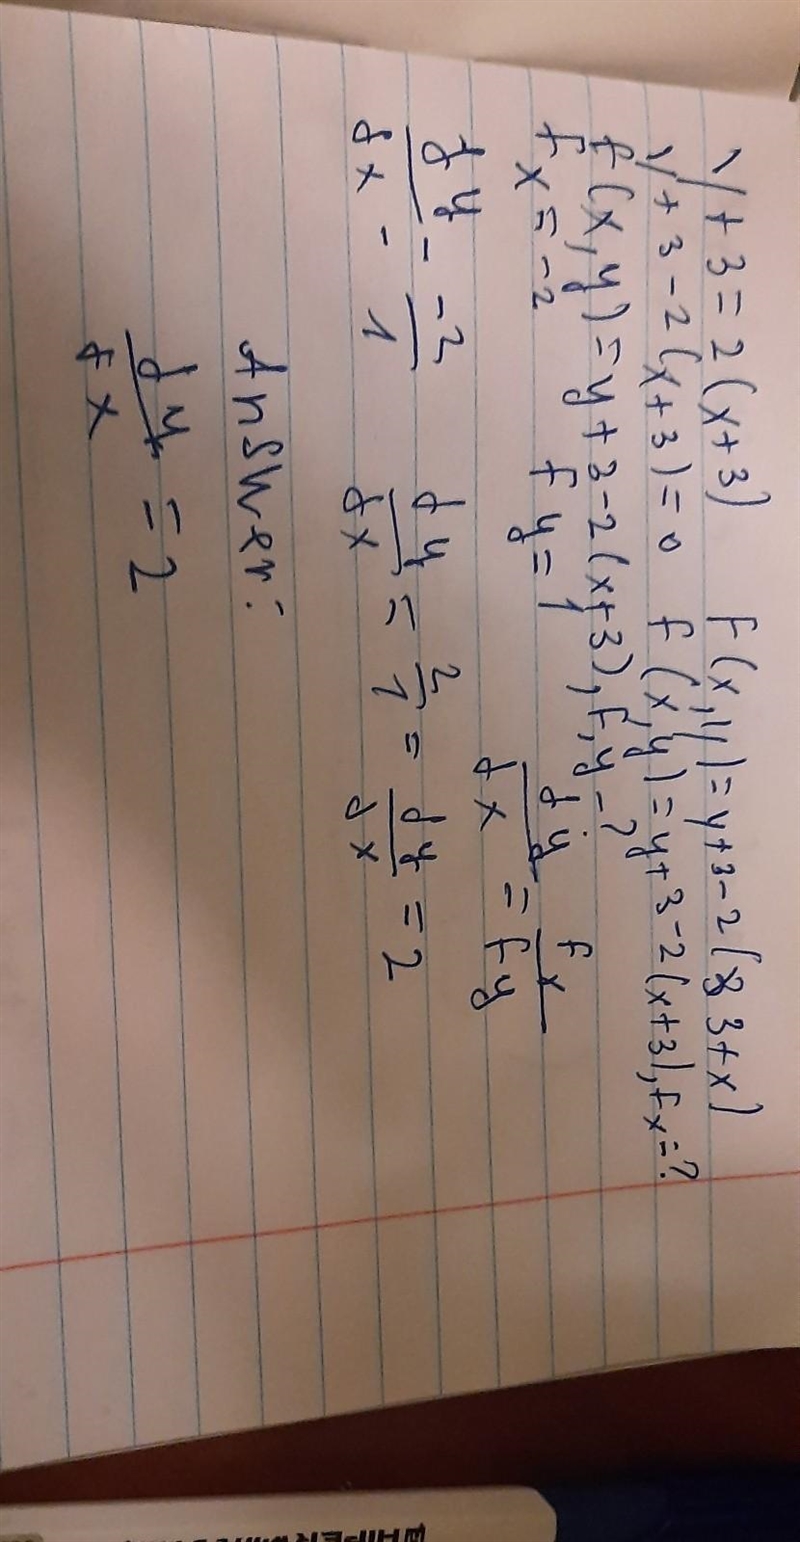 y+3=2(x+3) F(x,y)=y+3-2(3+x)
y+3-2(x+3)=0 f(x,y)=y+3-2(x+3), Fx=?
f(x,y)=y+3-2(x+3), F,y-?
Fx=-2 Fy=1 dy/dx = Fx/Fy
dy/dx - -2/1 dy/dx = 2/1 = dy/dx = 2
Answer:
dy/dx = 2